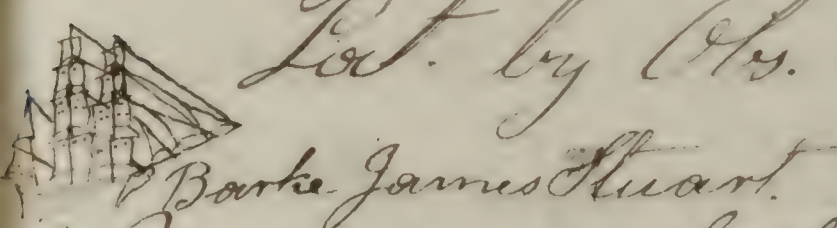 Lat. by Obs.
Barke James Stuart.